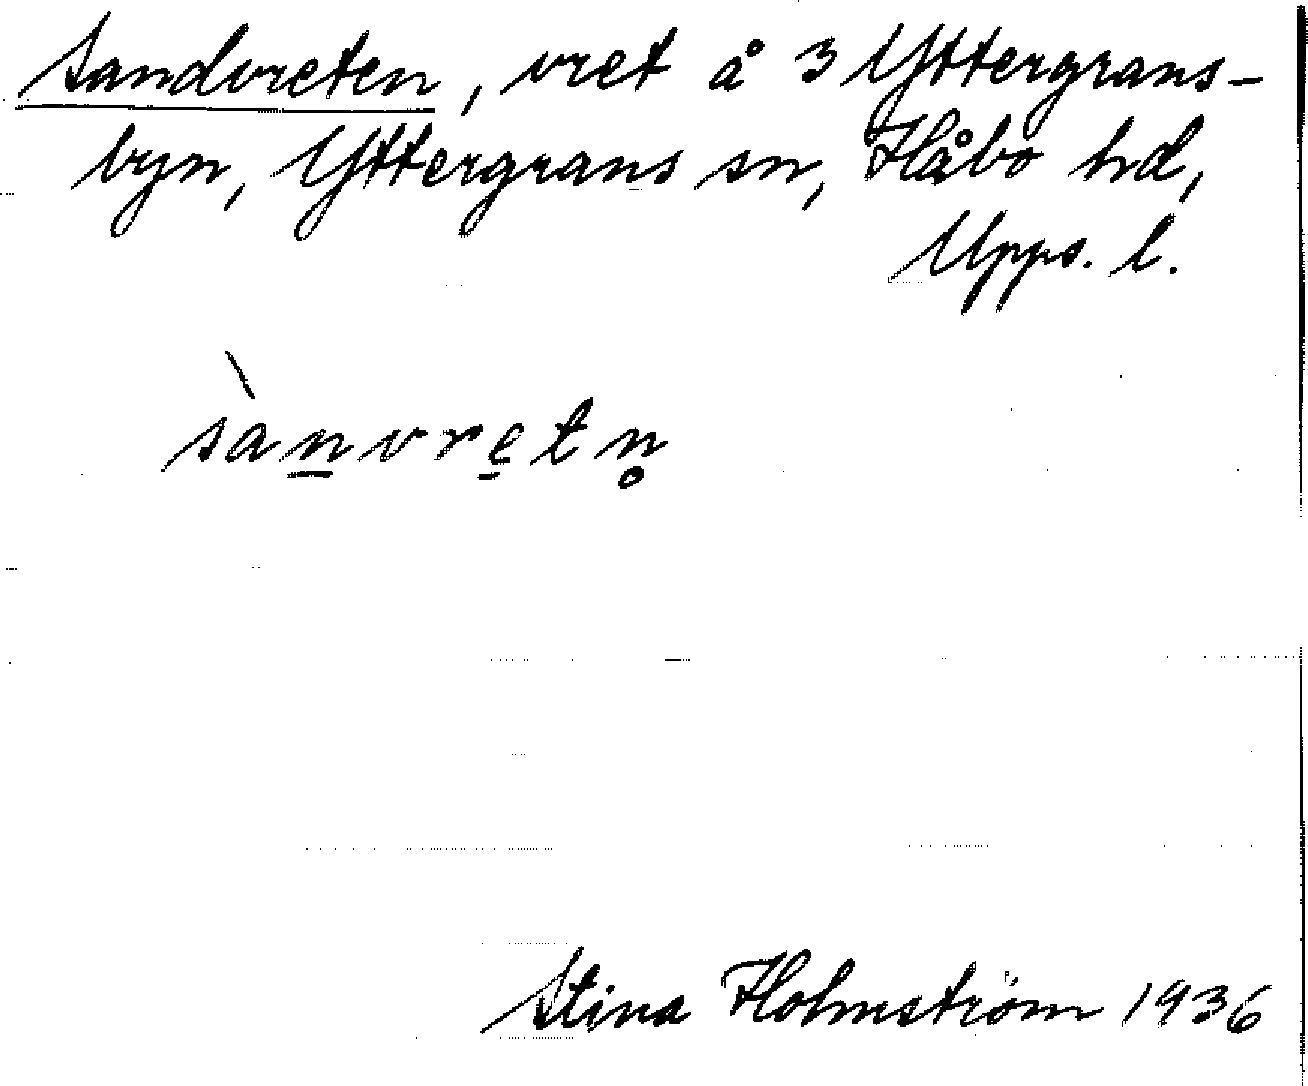 Sandvreten, vret å 3 Yttergrans-
byn, Yttergrans sn, Håbo hd,
Upps. l.
sànvretn̥
Stina Holmström 1936